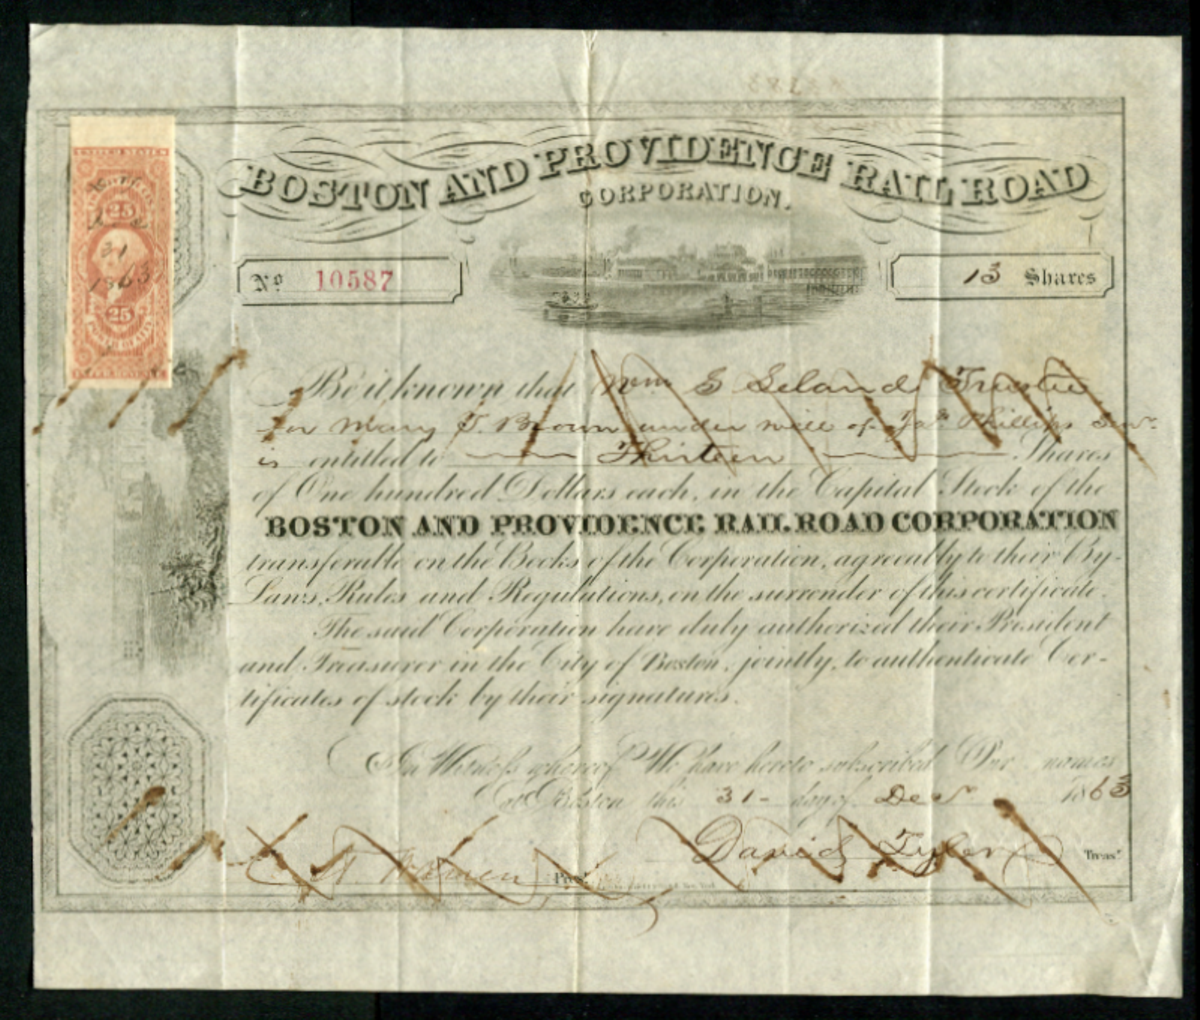 BOSTON AND PROVIDENCE RAIL ROAD
CORPORATION.
UNITED STATES
25
31
1863
25
POWER OF ATT'Y
No 10587
13 Shares
Be it known that Wm S Leland Trustee
for Mary T. Brown under will of Jas Phillips
is entitled to Thirteen Shares
of One hundred Dollars each, in the Capital Stock of the
BOSTON AND PROVIDENCE RAIL ROAD CORPORATION
transferable on the Books of the Corporation, agreeably to their By-
Laws, Rules and Regulations, on the surrender of this certificate.
The said Corporation have duly authorized their President
and Treasurer in the City of Boston, jointly, to authenticate Cer-
tificates of stock by their signatures.
In Witness whereof We have hereto subscribed Our names
At Boston this 31 - day of Decr 1863
David Tyler Treasr
Warren Prest